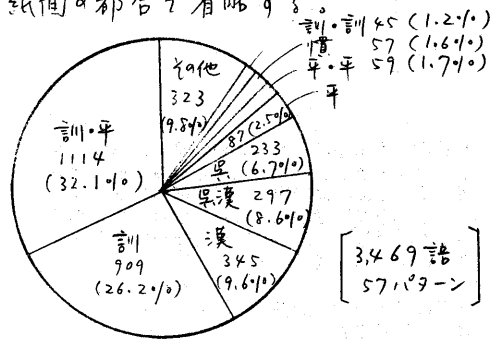 紙面の都合で省略する。
訓・訓 45 (1.2%)
慣 57 (1.6%)
平・平 59 (1.7%)
平
87 (2.5%)
その他
323
(9.8%)
呉
233
(6.7%)
呉漢 297
(8.6%)
漢
345
(9.6%)
訓
909
(26.2%)
訓・平
1114
(32.1%)
3,469語
57パターン